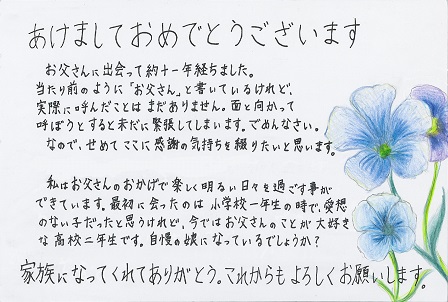 あけましておめでとうございます
お父さんに出会って約十一年経ちました。
当たり前のように「お父さん」と書いているけれど、
実際に呼んだことはまだありません。面と向かって
呼ぼうとすると未だに緊張してしまいます。ごめんなさい。
なので、せめてここに感謝の気持ちを綴りたいと思います。
私はお父さんのおかげで楽しく明るい日々を過ごす事が
できています。最初に会ったのは小学校一年生の時で、愛想
のない子だったと思うけれど、今ではお父さんのことが大好き
な高校二年生です。自慢の娘になっているでしょうか?
家族になってくれてありがとう。これからもよろしくお願いします。